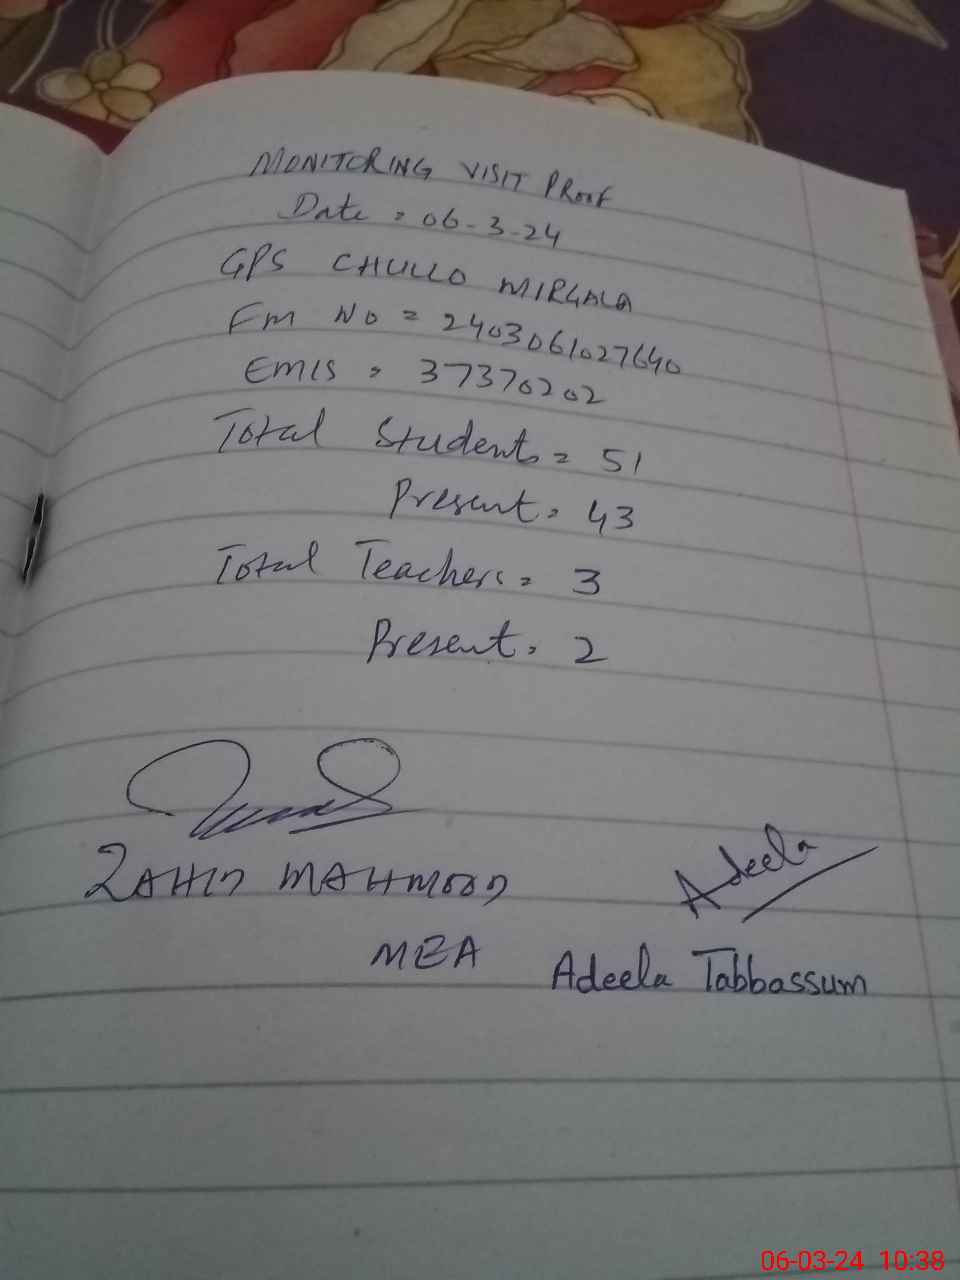 MONITORING VISIT PROOF
Date = 06-3-24
GPS CHULLO MIRGALA
Fm No = 2403061027640
EMIS = 37370202
Total Students = 51
Present = 43
Total Teachers = 3
Present = 2
ZAHID MAHMOOD
Adeela
MEA
Adeela Tabbassum
06-03-24 10:38